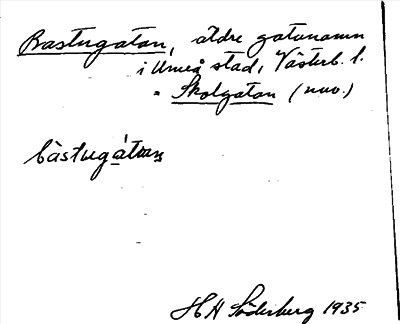 Bastugatan, äldre gatunamn
i Umeå stad, Västerb. l.
= Skolgatan (nuv.)
bàstugátan
H H Söderberg 1935